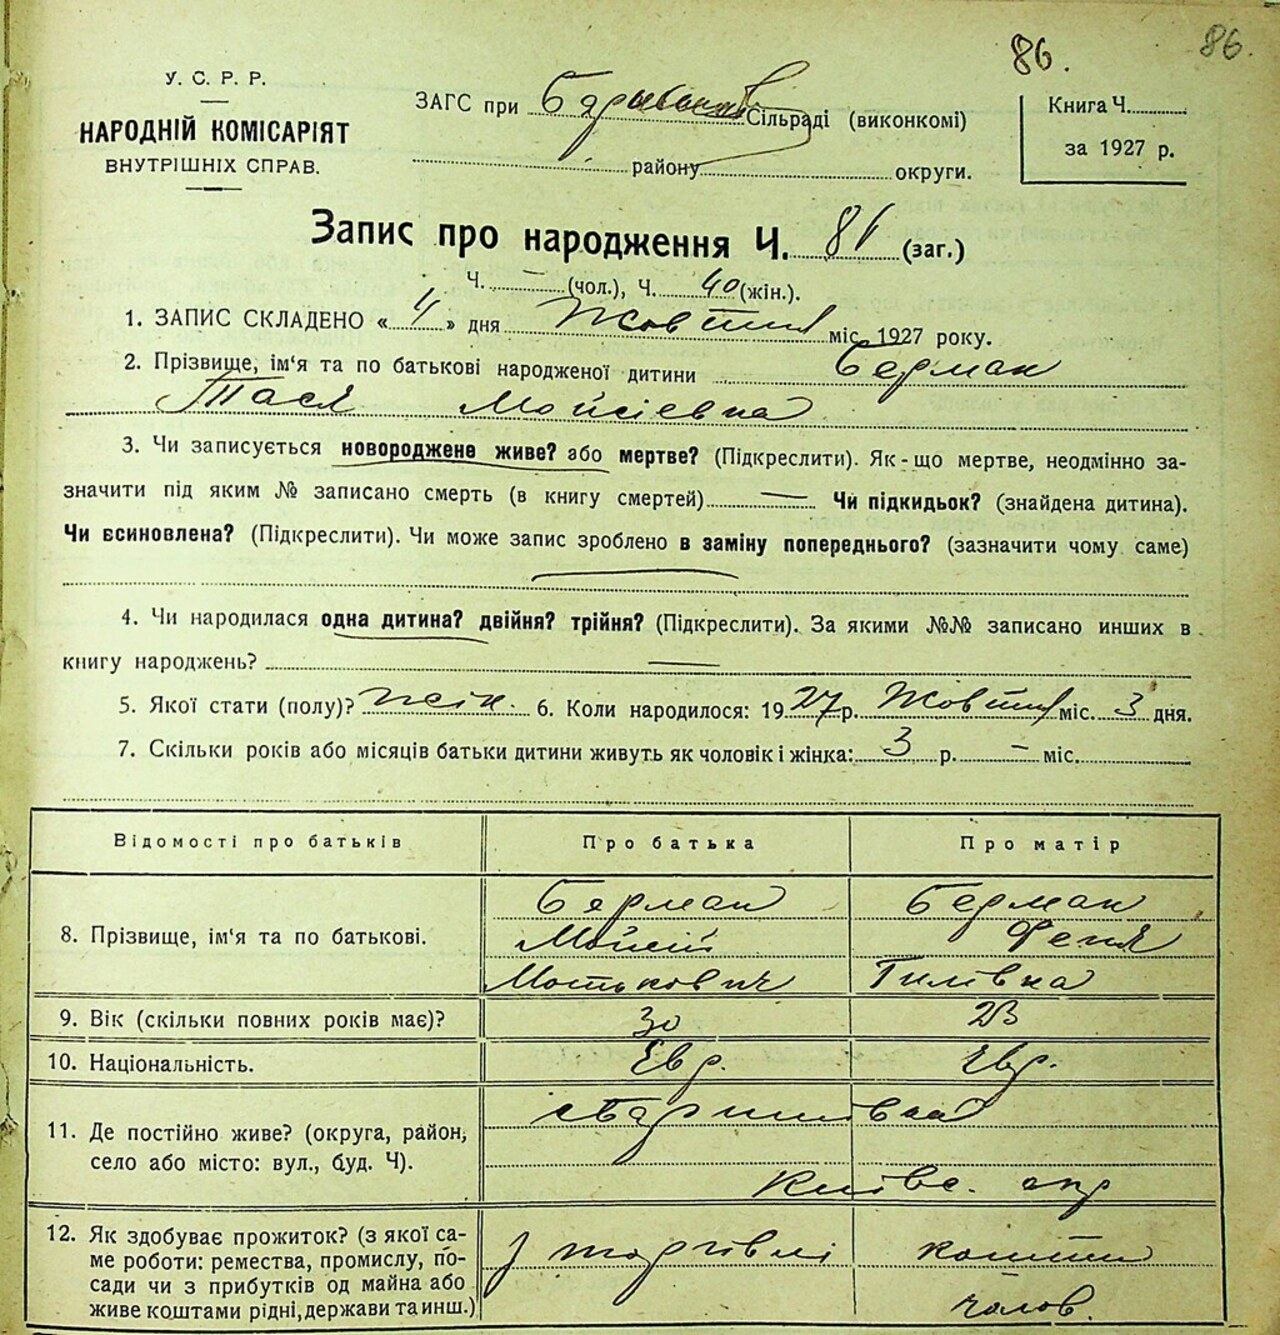 86.
86.
У. С. Р. Р.
НАРОДНІЙ КОМІСАРІЯТ
ВНУТРІШНІХ СПРАВ.
ЗАГС при Сільраді (виконкомі)
району округи.
Книга Ч.
за 1927 р.
Запис про народження Ч. 86 (заг.)
Ч. — (чол.), Ч. 40 (жін.).
1. ЗАПИС СКЛАДЕНО « 4 » дня Жовтня міс. 1927 року.
2. Прізвище, ім'я та по батькові народженої дитини Берман
Тася Мойсіевна
3. Чи записується новороджене живе? або мертве? (Підкреслити). Як-що мертве, неодмінно за-
значити під яким № записано смерть (в книгу смертей) — Чи підкидьок? (знайдена дитина).
Чи всиновлена? (Підкреслити). Чи може запис зроблено в заміну попереднього? (зазначити чому саме)
—
4. Чи народилася одна дитина? двійня? трійня? (Підкреслити). За якими №№ записано инших в
книгу народжень? —
5. Якої стати (полу)? жін. 6. Коли народилося: 1927 р. Жовтня міс. 3 дня.
7. Скільки років або місяців батьки дитини живуть як чоловік і жінка: 3 р. — міс.
Відомості про батьків Про батька Про матір
8. Прізвище, ім'я та по батькові.
Берман
Мойсій
Мотькович
Берман
Феня
Гилівна
9. Вік (скільки повних років має)? 30 23
10. Національність. Євр. Євр.
11. Де постійно живе? (округа, район,
село або місто: вул., буд. Ч).
Київс. окр
12. Як здобуває прожиток? (з якої са-
ме роботи: ремества, промислу, по-
сади чи з прибутків од майна або
живе коштами рідні, держави та инш.)
з торгівлі
кошти
чолов.